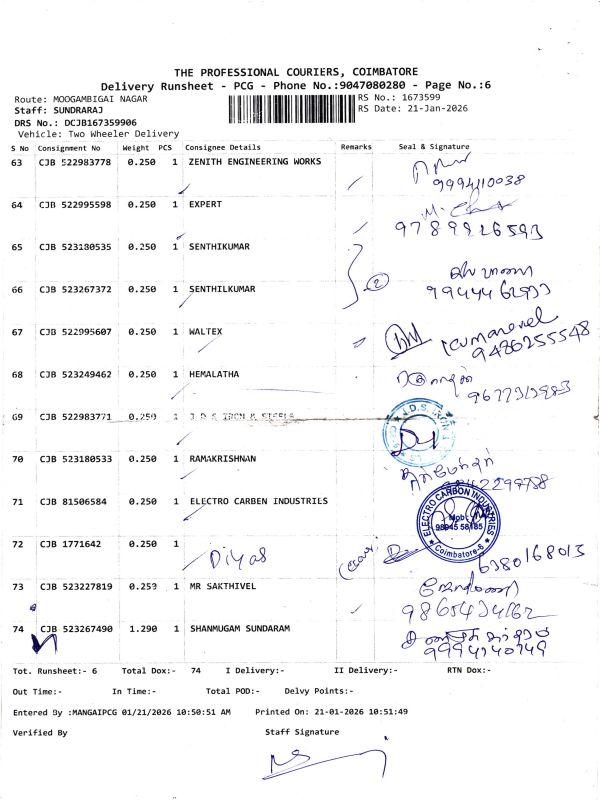 THE PROFESSIONAL COURIERS, COIMBATORE
Delivery Runsheet - PCG - Phone No.:9047080280 - Page No.:6
Route: MOOGAMBIGAI NAGAR
RS No.: 1673599
Staff: SUNDRARAJ
RS Date: 21-Jan-2026
DRS No.: DCJB167359906
Vehicle: Two Wheeler Delivery
S No Consignment No Weight PCS Consignee Details Remarks Seal & Signature
63 CJB 522983778 0.250 1 ZENITH ENGINEERING WORKS
9994110038
64 CJB 522995598 0.250 1 EXPERT
9789926593
65 CJB 523180535 0.250 1 SENTHIKUMAR
2
66 CJB 523267372 0.250 1 SENTHILKUMAR
67 CJB 522995607 0.250 1 WALTEX
9486255548
68 CJB 523249462 0.250 1 HEMALATHA
69 CJB 522983771 0.250 1 J.D.S IRON & STEELS
J.D.S. IRON &
70 CJB 523180533 0.250 1 RAMAKRISHNAN
71 CJB 81506584 0.250 1 ELECTRO CARBEN INDUSTRIES
ELECTRO CARBON INDUSTRIES
Mob:
98945 58185
Coimbatore-6
72 CJB 1771642 0.250 1
Diyas
6380168013
73 CJB 523227819 0.250 1 MR SAKTHIVEL
74 CJB 523267490 1.290 1 SHANMUGAM SUNDARAM
Tot. Runsheet:- 6 Total Dox:- 74 I Delivery:- II Delivery:- RTN Dox:-
Out Time:- In Time:- Total POD:- Delvy Points:-
Entered By :MANGAIPCG 01/21/2026 10:50:51 AM Printed On: 21-01-2026 10:51:49
Verified By Staff Signature